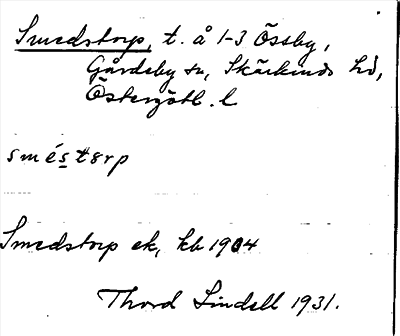 Smedstorp, t. å 1-3 Össby,
Gårdeby sn, Skärkinds hd,
Östergötl. l
sméstɐrp
Smedstorp ek, kb 1904
Thord Lindell 1931.